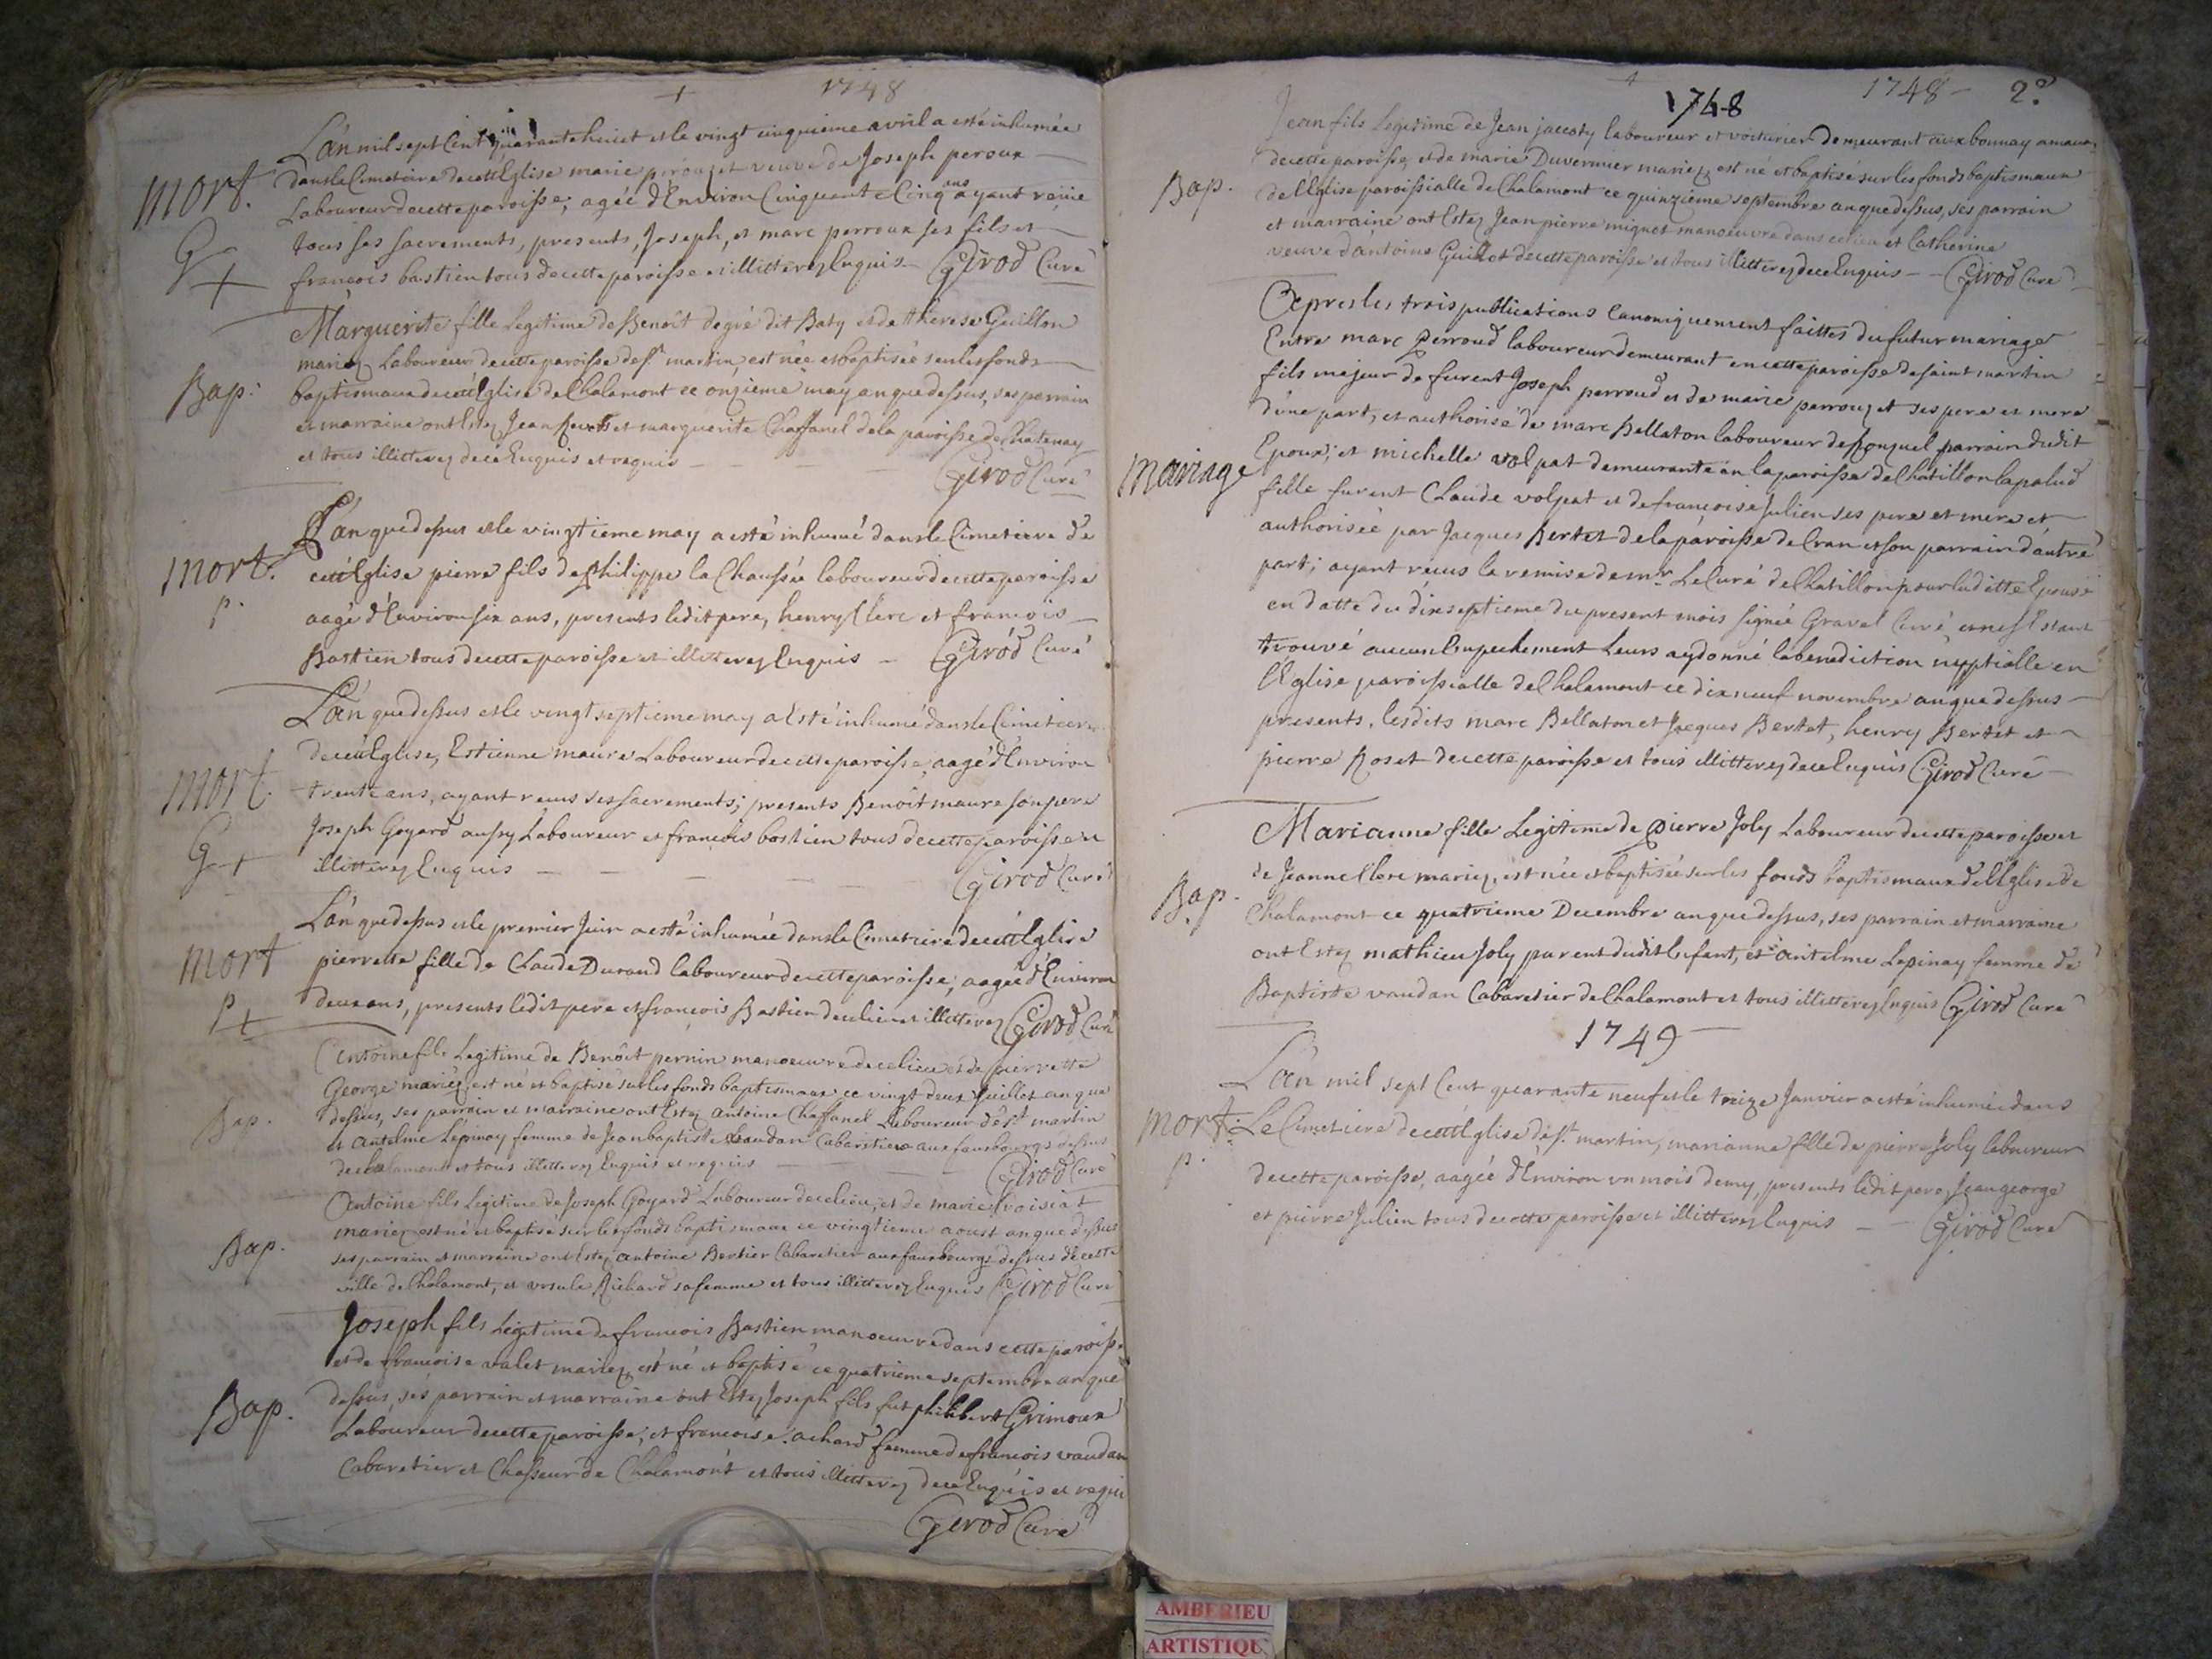 + 1748
L'an mil sept Cent quarante huict et le vingt cinquieme avril a esté inhumée
mort.
dans le Cimetiere de cette Eglise marie perouzet veuve de Joseph peroux
Laboureur de cette paroisse, agée d'Environ Cinquante Cinq ans ayant reçue
G +
tous ses sacrements, presents, Joseph, et marc perroux ses fils et
françois bastien tous de cette paroisse et illitterez Enquis - Girod Curé
Marguerite fille Legitime de Benoît degré dit Baty et de therese Guillon
mariez Laboureur de cette paroisse de st martin, est née et baptisée sur les fonds
Bap:
baptismaux de cette Eglise de Chalamont ce onzieme may an que dessus, ses parrain
et marraine ont Estez Jean et marguerite Chaffanel de la paroisse de Chatenay
et tous illitterez de ce Enquis et requis -
Girod Curé
L'an que dessus et le vingtieme may a esté inhumé dans le Cimetiere de
mort.
cette Eglise pierre fils de philippe la Chaussée laboureur de cette paroisse
p.
aagé d'Environ six ans, presents ledit pere, henry Clerc et françois
Bastien tous de cette paroisse et illitterez Enquis - Girod Curé
L'an que dessus et le vingt septieme may a Esté inhumé dans le Cimetiere
de cette Eglise, Estienne maure Laboureur de cette paroisse, aagé d'Environ
mort.
trente ans, ayant reçus ses sacrements; presents Benoit maure son pere
Joseph Goyard aussy Laboureur et françois bastien tous de cette paroisse et
G +
illitterez Enquis - - - - - Girod Curé
L'an que dessus et le premier Juin a esté inhumée dans le Cimetiere de cette Eglise
mort
pierrette fille de Claude Durand laboureur de cette paroisse, aagée d'Environ
p +
deux ans, presents ledit pere et françois Bastien de ce lieu et illitterez Girod Curé
Antoine fils Legitime de Benôit pernin manoeuvre de ce lieu et de pierrette
George mariez, est né et baptisé sur les fonds baptismaux ce vingt deux Juillet an que
Bap.
dessus, ses parrain et marraine ont Estez antoine Chaffanel Laboureur de st martin
et antelme Lépinay femme de Jean baptiste vaudan Cabaretier aux fausbourgs dessus
de chalamont et tous illitterez Enquis et requis - Girod Curé
Antoine fils Legitime de Joseph Goyard Laboureur de ce lieu, et de marie Croisiat
mariez est né et baptisé sur les fonds baptismaux ce vingtieme aoust an que dessus
Bap.
ses parrain et marraine ont Estez antoine Bertier Cabaretier aux fausbourgs dessus de cette
ville de Chalamont, et ursule Richard sa femme et tous illitterez Enquis Girod Curé
Joseph fils Legitime de françois Bastien manoeuvre dans cette paroisse
et de françoise valet mariez est né et baptisé ce quatrieme septembre an que
Bap.
dessus, ses parrain et marraine ont Estez Joseph fils fut philibert Grimoux
Laboureur de cette paroisse, et françoise achard femme de françois vaudan
Cabaretier et Chasseur de Chalamont et tous illitterez de ce Enquis et requis
Girod Curé
+ 1748 1748 - 2e
Jean fils Legitime de Jean jaccoty laboureur et voiturier demeurant aux bonnay
de cette paroisse, et de marie Duvernier mariez est né et baptisé sur les fonds baptismaux
Bap.
de l'Eglise paroissialle de Chalamont ce quinzieme septembre an que dessus, ses parrain
et marraine ont Estez Jean pierre mignot manoeuvre dans ce lieu et Catherine
veuve d'antoine Guillot de cette paroisse et tous illitterez de ce Enquis - - Girod Curé
Apres les trois publications Canoniquement faittes du futur mariage
Entre marc perroud laboureur demeurant en cette paroisse de saint martin
fils majeur de furent Joseph perroud et de marie perrouzet ses pere et mere
d'une part, et authorisé de marc Bellaton laboureur de Ronzuel parrain dudit
mariage
Epoux; et michelle volpat demeurante en la paroisse de Chatillon la palud
fille furent Claude volpat et de françoise Julien ses pere et mere et
authorisée par Jacques Bertet de la paroisse de Cran et son parrain d'autre
part; ayant reçus la remise de mr. Le Curé de Chatillon pour laditte Epouse
en datte du dix septieme du present mois signée Gravel Curé, et ne s'Estant
trouvé aucun Empechement Leurs ay donné la benediction nuptialle en
l'Eglise paroissialle de Chalamont ce dix neuf novembre an que dessus -
presents, lesdits marc Bellaton et Jacques Bertet, henry Bertet et -
pierre Roset de cette paroisse et tous illitterez de ce Enquis Girod Curé -
Marianne fille Legitime de pierre Joly Laboureur de cette paroisse et
de Jeanne Clerc mariez, est née et baptisée sur les fonds baptismaux de l'Eglise de
Bap.
Chalamont ce quatrieme Decembre an que dessus, ses parrain et marraine
ont Estez mathieu Joly parent dudit Enfant, et antelme Lepinay femme de
Baptiste vaudan Cabaretier de Chalamont et tous illitterez Enquis Girod Curé
1749
L'an mil sept Cent quarante neuf et le treize Janvier a esté inhumée dans
mort.
Le Cimetiere de cette Eglise de st. martin, marianne fille de pierre Joly laboureur
p.
de cette paroisse, aagée d'Environ un mois demy, presents ledit pere, Jean george
et pierre Julien tous de cette paroisse et illitterez Enquis - - Girod Curé
AMBERIEU
ARTISTIQU